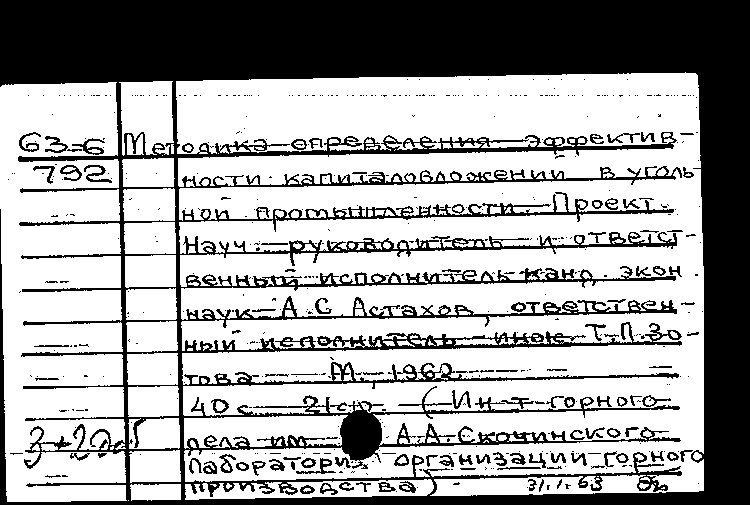 63-6 Методика определения эффектив-
792 ности капиталовложений в уголь-
ной промышленности. Проект.
Науч. руководитель и ответст-
венный исполнитель канд. экон.
наук А.С Астахов, ответствен-
ный исполнитель инж. Т.П.Зо-
това М., 1962
40 с 21см. (Ин-т горного
дела им А.А.Скочинского
Лаборатория организации горного
производства)
31.1.63